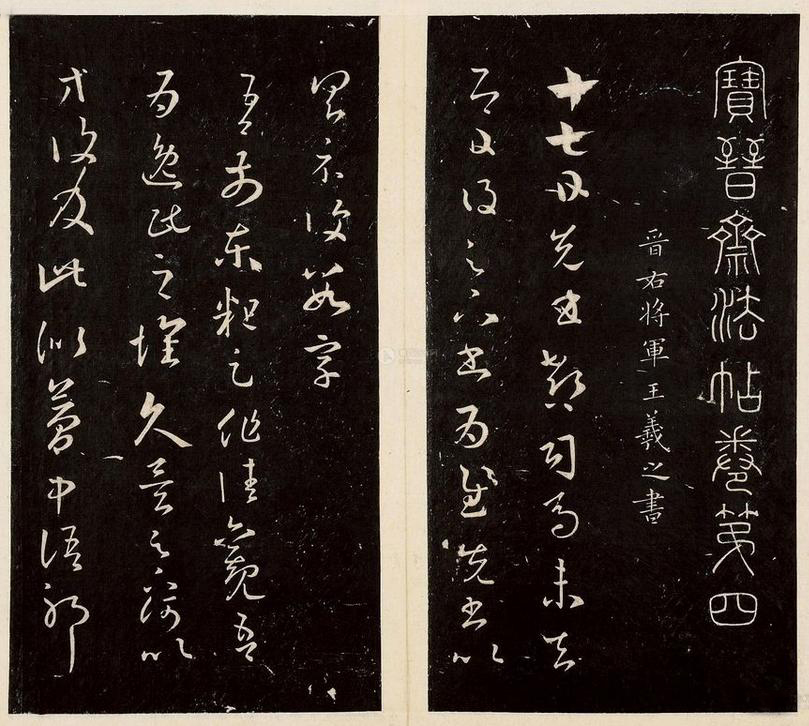 寶晉齋法帖卷第四
晉右將軍王羲之書
十七日先書郗司馬未去
即日得足下書為慰先書以
具示復數字
吾前東粗足作佳觀吾
為逸民之懷久矣足下何以
方復及此似夢中語耶